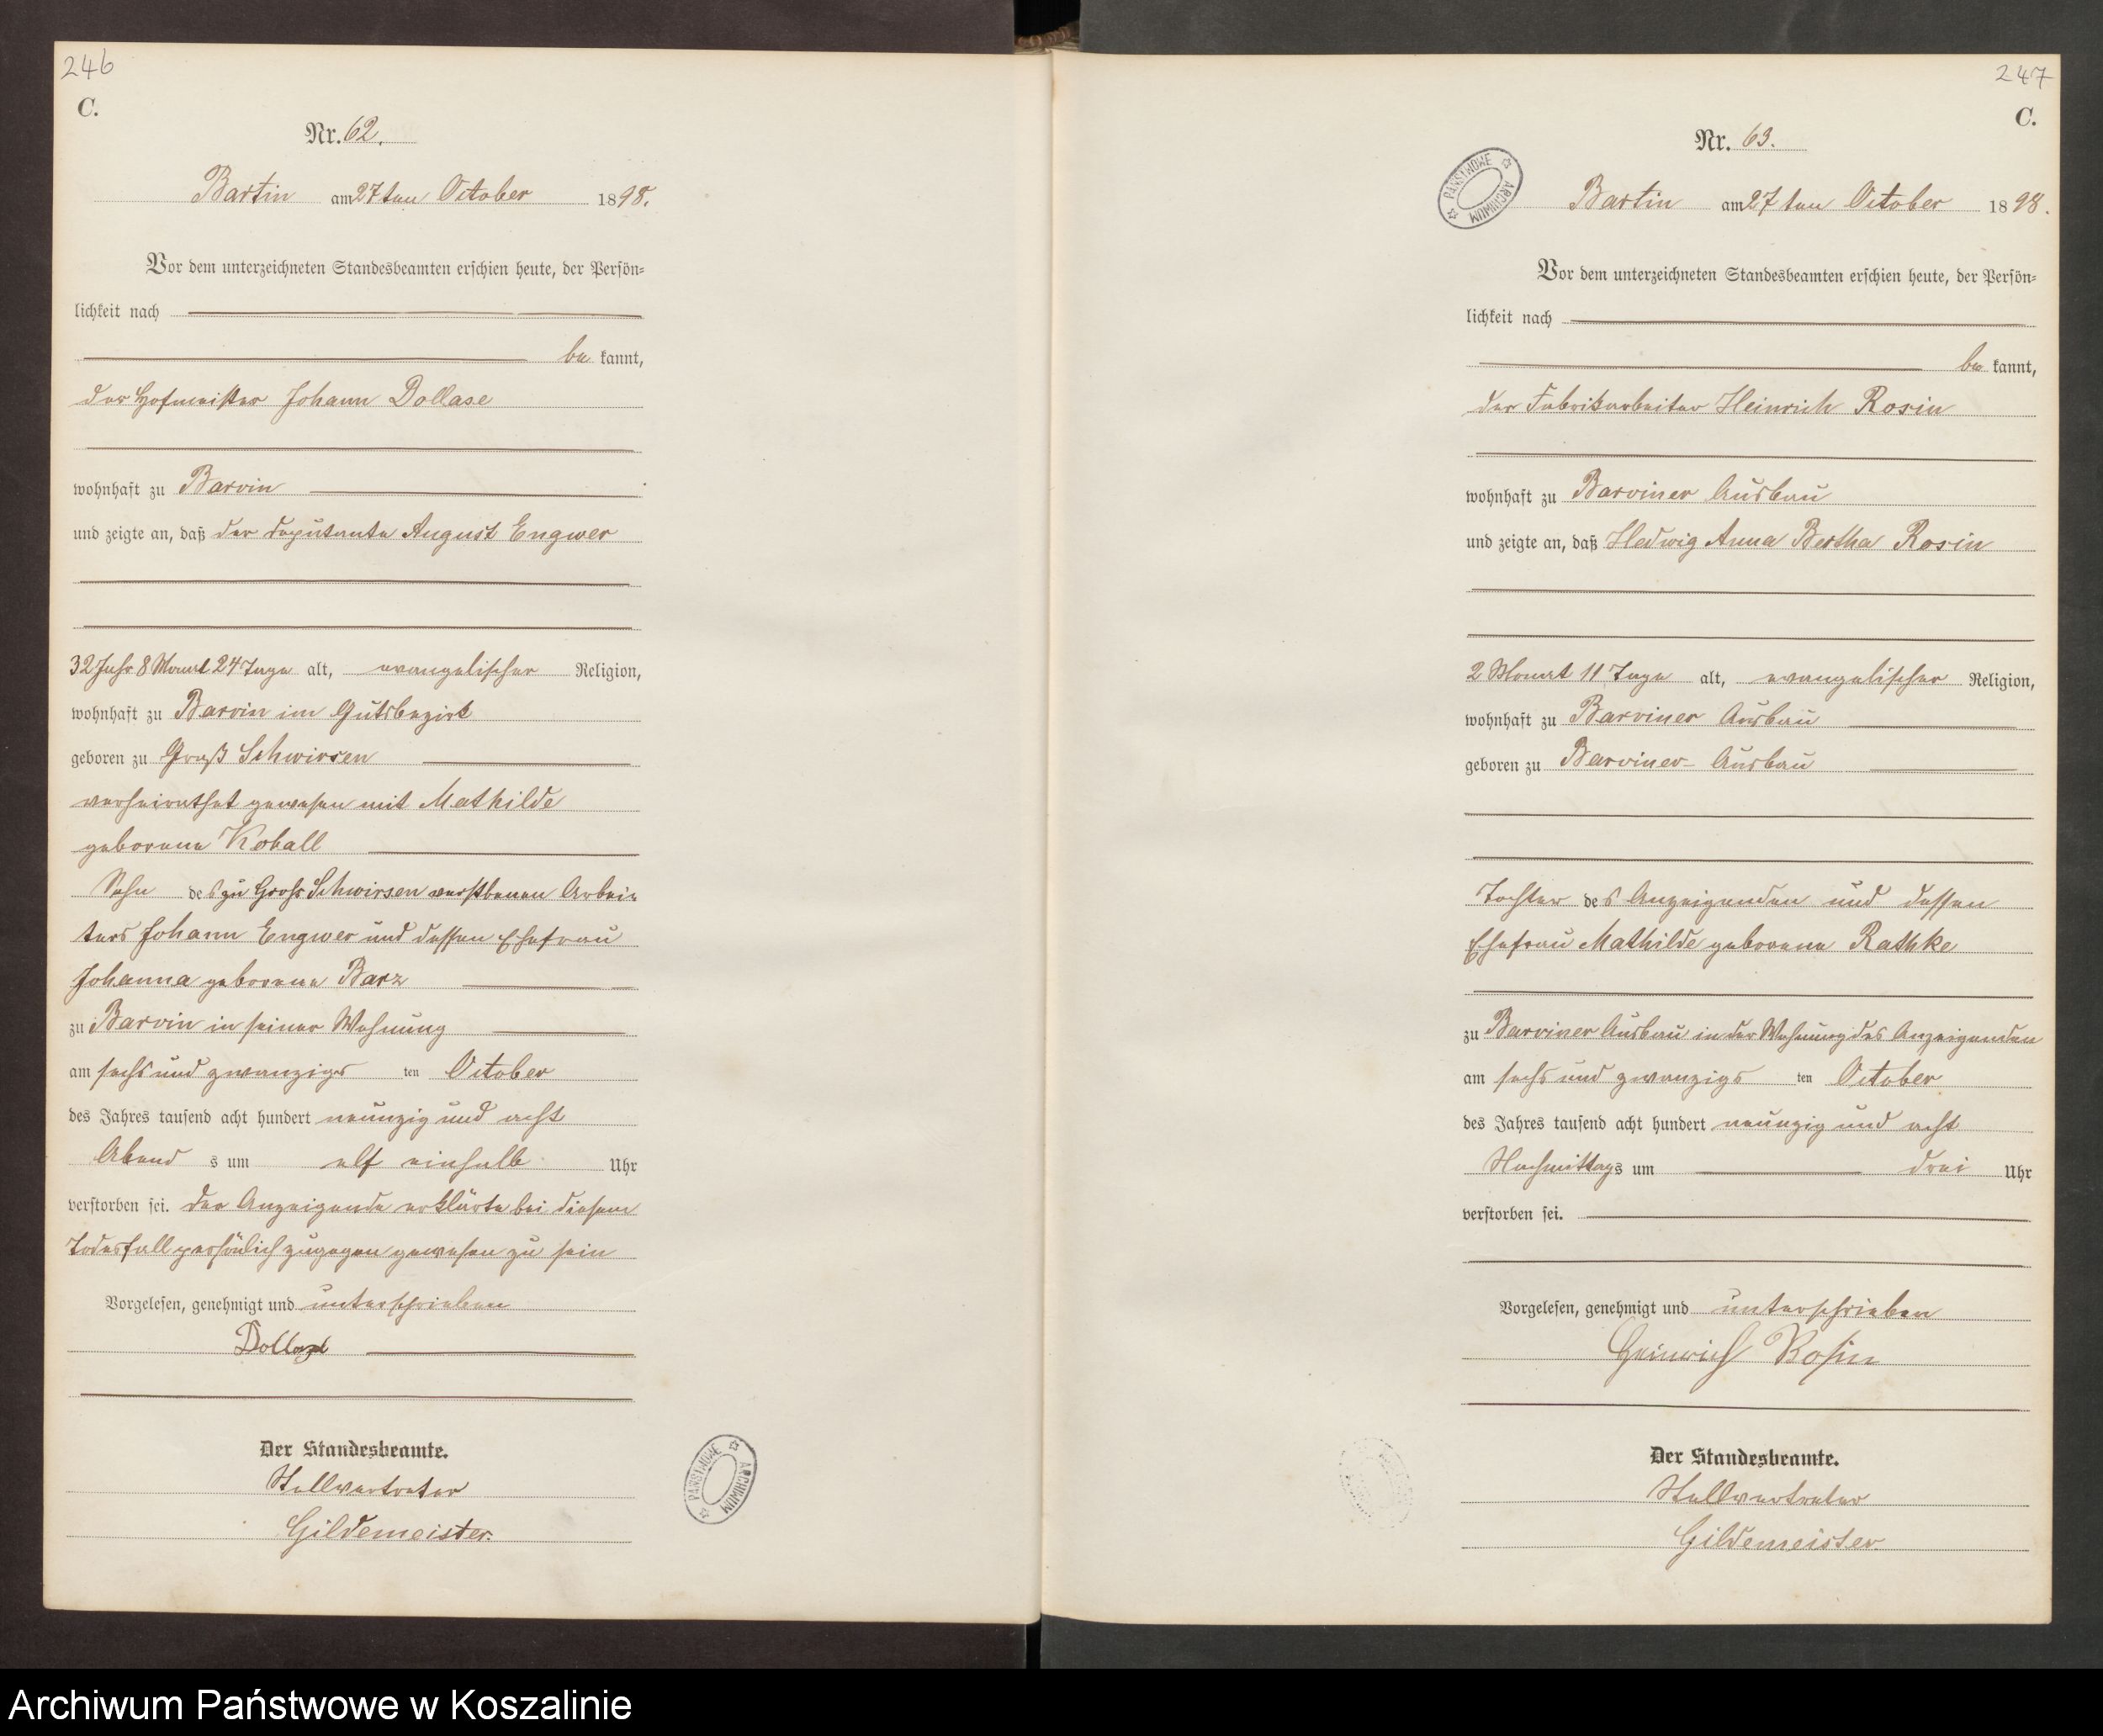 246
C.
Nr. 62.
Bartin am 27ten October 1898.
Vor dem unterzeichneten Standesbeamten erschien heute, der Persön-
lichkeit nach
be kannt,
der Hofmeister Johann Dollase
wohnhaft zu Barvin
und zeigte an, daß der Deputante August Engwer
32 Jahr 8 Monat 24 Tage alt, evangelischer Religion,
wohnhaft zu Barvin im Gutsbezirk
geboren zu Groß Schwirsen
verheirathet gewesen mit Mathilde
geborene Koball
Sohn des zu Groß Schwirsen verstbenen Arbei-
ters Johann Engwer und dessen Ehefrau
Johanna geborene Barz
zu Barvin in seiner Wohnung
am sechs und zwanzigs ten October
des Jahres tausend acht hundert neunzig und acht
Abend s um elf einhalb Uhr
verstorben sei. Der Anzeigende erklärte bei diesem
Todesfall persönlich zugegen gewesen zu sein
Vorgelesen, genehmigt und unterschrieben
Dollase
Der Standesbeamte.
Stellvertreter
Gildemeister.
PAŃSTWOWE ARCHIWUM
247
C.
Nr. 63.
PAŃSTWOWE ARCHIWUM
Bartin am 27ten October 1898.
Vor dem unterzeichneten Standesbeamten erschien heute, der Persön-
lichkeit nach
be kannt,
der Fabrikarbeiter Heinrich Rosin
wohnhaft zu Barviner Ausbau
und zeigte an, daß Hedwig Anna Bertha Rosin
2 Monat 11 Tage alt, evangelischer Religion,
wohnhaft zu Barviner Ausbau
geboren zu Barviner-Ausbau
Tochter des Anzeigenden und dessen
Ehefrau Mathilde geborene Rathke
zu Barviner Ausbau in der Wohnung des Anzeigenden
am sechs und zwanzigs ten October
des Jahres tausend acht hundert neunzig und acht
Nachmittags um drei Uhr
verstorben sei.
Vorgelesen, genehmigt und unterschrieben
Heinrich Rosin
Der Standesbeamte.
Stellvertreter
Gildemeister
Archiwum Państwowe w Koszalinie